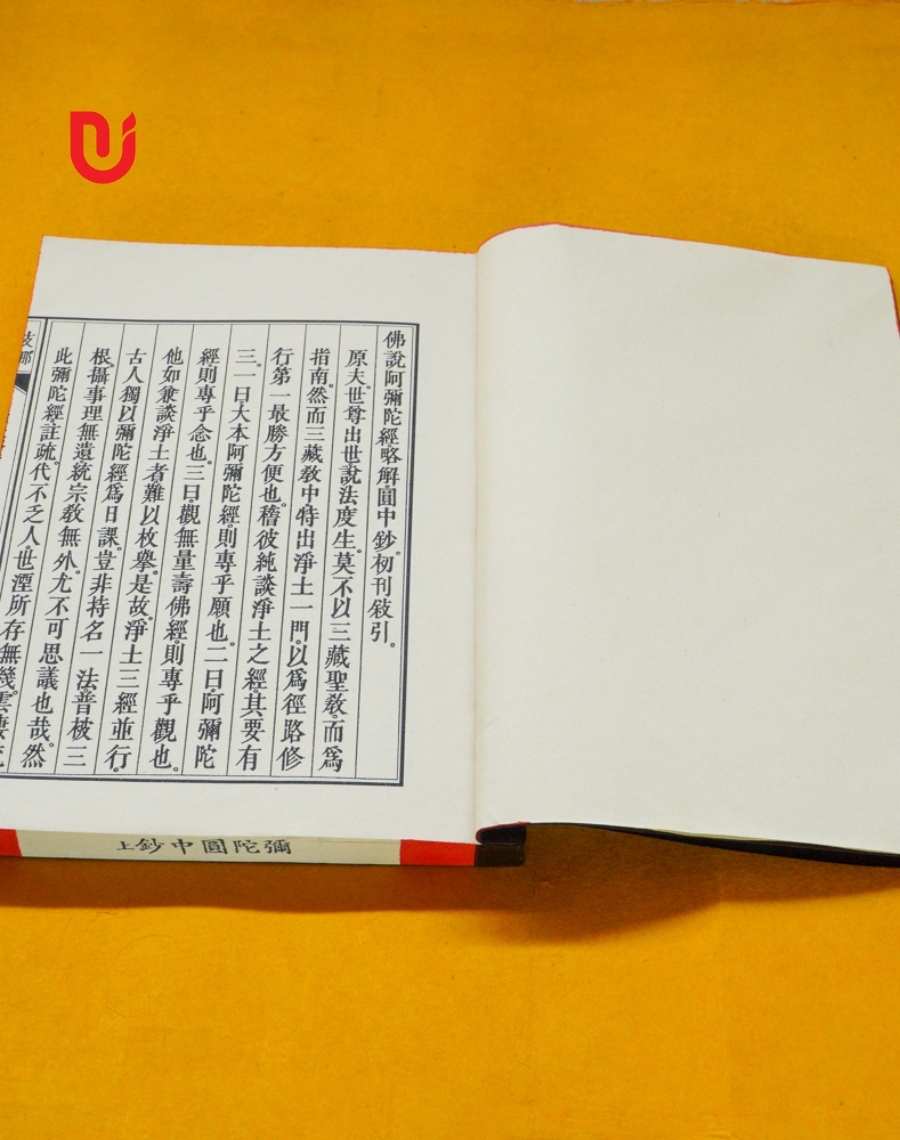 佛說阿彌陀經略解圓中鈔。初刊敍引。
原夫。世尊出世說法度生。莫不以三藏聖敎。而爲
指南。然而三藏敎中。特出淨土一門。以爲徑路修
行第一最勝方便也。稽彼純談淨土之經。其要有
三。一曰大本阿彌陀經。則專乎願也。二曰阿彌陀
經。則專乎念也。三曰觀無量壽佛經。則專乎觀也。
他如兼談淨土者。難以枚擧。是故。淨土三經並行。
古人獨以彌陀經爲日課。豈非持名一法。普被三
根。攝事理無遺。統宗敎無外。尤不可思議也哉。然
此彌陀經註疏。代不乏人。世湮所存無幾。雲棲
彌陀圓中鈔上